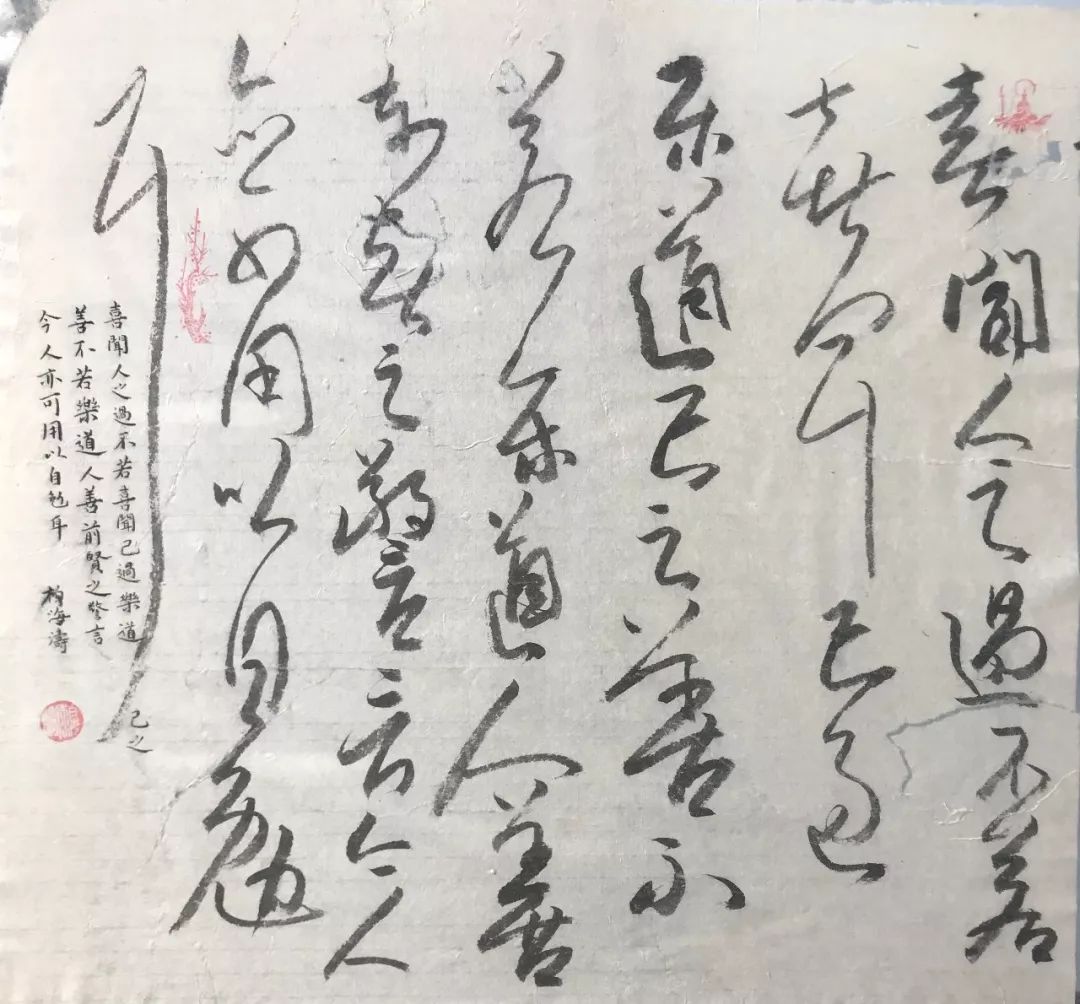 喜聞人之過不若
喜聞己過
樂道己之善不
若樂道人善
前賢之警言今人
亦可用以自勉
耳
喜聞人之過不若喜聞己過樂道
己之
善不若樂道人善前賢之警言
今人亦可用以自勉耳
海濤